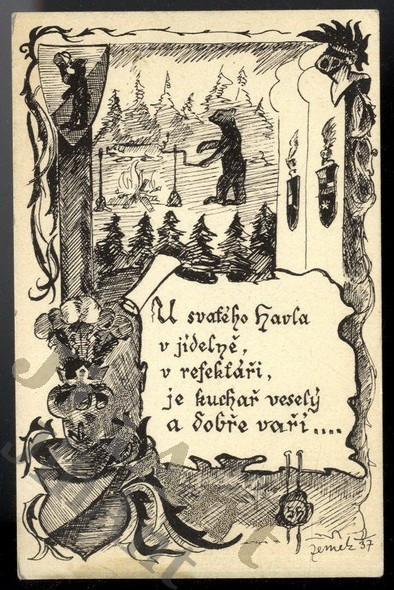 U svatého Havla
v jídelně,
v refektáři,
je kuchař veselý
a dobře vaří....
55
37